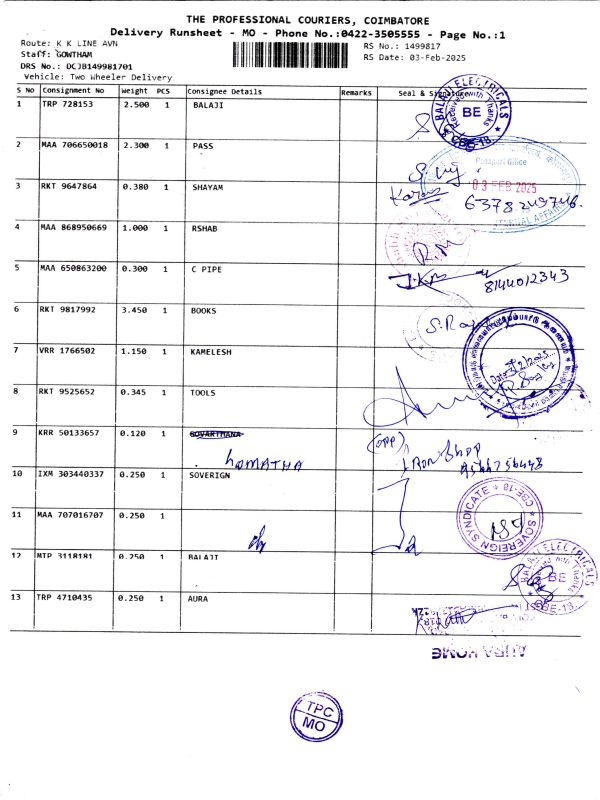 THE PROFESSIONAL COURIERS, COIMBATORE
Delivery Runsheet - MO - Phone No.:0422-3505555 - Page No.:1
Route: K K LINE AVN
RS No.: 1499817
Staff: GOWTHAM
RS Date: 03-Feb-2025
DRS No.: DCJB149981701
Vehicle: Two Wheeler Delivery
S No Consignment No Weight PCS Consignee Details Remarks Seal & Signature
1 TRP 728153 2.500 1 BALAJI
BALAJI ELECTRICALS
Received with Thanks
BE
CBE-18.
2 MAA 706650018 2.300 1 PASS
Passport Office
03 FEB 2025
3 RKT 9647864 0.380 1 SHAYAM
6378249746.
4 MAA 868950669 1.000 1 RSHAB
R.M
5 MAA 650863200 0.300 1 C PIPE
J.KM
8144012343
6 RKT 9817992 3.450 1 BOOKS
7 VRR 1766502 1.150 1 KAMELESH
8 RKT 9525652 0.345 1 TOOLS
9 KRR 50133657 0.120 1 GOVARTHANA
(OPP)
10 IXM 303440337 0.250 1 SOVERIGN
SOVEREIGN SYNDICATE * CBE-18 *
11 MAA 707016707 0.250 1
12 MTP 3118181 0.250 1 BALAJI
BALAJI ELECTRICALS
Received with Thanks
BE
CBE-18.
13 TRP 4710435 0.250 1 AURA
AURA HOME
TPC
MO